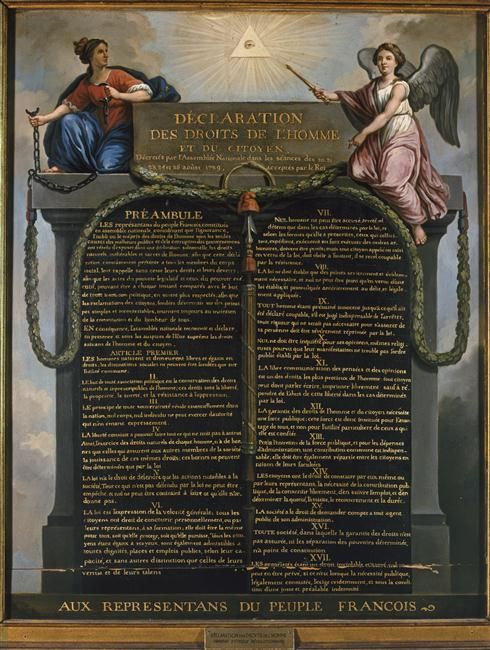 DÉCLARATION
DES DROITS DE L'HOMME
ET DU CITOYEN,
Décretés par l'Assemblée Nationale dans les séances des 20, 21
23, 24 et 26 août 1789, acceptés par le Roi
PRÉAMBULE
LES représentans du peuple Francois, constitués
en assemblée nationale, considérant que l'ignorance,
l'oubli ou le mépris des droits de l'homme sont les seules
causes des malheurs publics et de la corruption des gouvernemens
ont résolu d'exposer dans une déclaration solemnelle, les droits
naturels, inaliénables et sacrés de l'homme; afin que cette décla
ration, constamment présente à tous les membres du corps
social, leur rappelle sans cesse leurs droits et leurs devoirs;
afin que les actes du pouvoir législatif et ceux du pouvoir exé
cutif, pouvant être à chaque instant comparés avec le but
de toute institution politique, en soient plus respectés; afin que
les réclamations des citoyens, fondées désormais sur des princi
pes simples et incontestables, tournent toujours au maintien
de la constitution et du bonheur de tous.
EN conséquence, l'assemblée nationale reconnoît et déclare,
en présence et sous les auspices de l'Être suprême les droits
suivans de l'homme et du citoyen.
ARTICLE PREMIER.
LES hommes naissent et demeurent libres et égaux en
droits; les distinctions sociales ne peuvent être fondées que sur
l'utilité commune.
II.
LE but de toute association politique est la conservation des droits
naturels et imprescriptibles de l'homme; ces droits sont la liberté,
la propriété, la sureté, et la résistance à l'oppression.
III.
LE principe de toute souveraineté réside essentiellement dans
la nation, nul corps, nul individu ne peut exercer d'autorité
qui n'en émane expressement.
IV.
LA liberté consiste à pouvoir faire tout ce qui ne nuit pas à autrui
Ainsi, l'exercice des droits naturels de chaque homme, n'a de bor
nes que celles qui assurent aux autres membres de la société
la jouissance de ces mêmes droits; ces bornes ne peuvent
être déterminées que par la loi
V.
LA loi n'a le droit de défendre que les actions nuisibles à la
société. Tout ce qui n'est pas défendu par la loi ne peut être
empêché, et nul ne peut être contraint à faire ce qu'elle n'or-
donne pas.
VI.
LA loi est l'expression de la volonté générale; tous les
citoyens ont droit de concourir personnellement, ou par
leurs représentans, à sa formation; elle doit être la même
pour tous, soit qu'elle protege, soit qu'elle punisse. Tous les cito
yens étant égaux à ses yeux, sont également admissibles à
toutes dignités, places et emplois publics, selon leur capa
cité, et sans autres distinction que celles de leurs
vertus et de leurs talens
VII.
NUL homme ne peut être accusé, arreté ni
détenu que dans les cas déterminés par la loi, et
selon les formes qu'elle a prescrites, ceux qui sollici
tent, expédient, exécutent ou font exécuter des ordres ar-
bitraires, doivent être punis; mais tout citoyen appelé ou saisi
en vertu de la loi, doit obéir à l'instant, il se rend coupable
par la résistance.
VIII.
LA loi ne doit établir que des peines strictement et évidem-
ment nécessaires, et nul ne peut être puni qu'en vertu d'une
loi établie et promulguée antérieurement au délit, et légale
ment appliquée.
IX.
TOUT homme étant présumé innocent jusqu'à ce qu'il ait
été déclaré coupable, s'il est jugé indispensable de l'arrêter,
toute rigueur qui ne serait pas nécessaire pour s'assurer de
sa personne doit être sévèrement réprimée par la loi.
X.
NUL ne doit être inquiété pour ses opinions, mêmes religi
euses pourvu que leur manifestation ne trouble pas l'ordre
public établi par la loi.
XI.
LA libre communication des pensées et des opinions
est un des droits les plus précieux de l'homme: tout citoyen
peut donc parler, écrire, imprimer librement, sauf à ré-
pondre de l'abus de cette liberté dans les cas déterminés
par la loi.
XII.
LA garantie des droits de l'homme et du citoyen nécessite
une force publique; cette force est donc instituée pour l'avan
tage de tous, et non pour l'utilité particulière de ceux a qui
elle est confiée.
XIII.
Pour l'entretien de la force publique, et pour les dépenses
d'administration, une contribution commune est indispen-
sable; elle doit être également répartie entre les citoyens en
raison de leurs facultées
XIV.
LES citoyens ont le droit de constater par eux même ou
par leurs représentans, la nécessité de la contribution pub
lique, de la consentir librement, d'en suivre l'emploi, et d'en
déterminer la quotité, l'assiette, le recouvrement et la durée.
XV.
LA société a le droit de demander compte à tout agent
public de son administration.
XVI.
TOUTE société, dans laquelle la garantie des droits n'est
pas assurée, ni la séparation des pouvoirs déterminée,
n'a point de constitution
XVII.
LES propriétés étant un droit inviolable et sacré, nul ne
peut en être privé, si ce n'est lorsque la nécessité publique,
légalement constatée, l'exige évidemment, et sous la condi
tion d'une juste et préalable indemnité
AUX REPRESENTANS DU PEUPLE FRANCOIS
DÉCLARATION DES DROITS DE L'HOMME